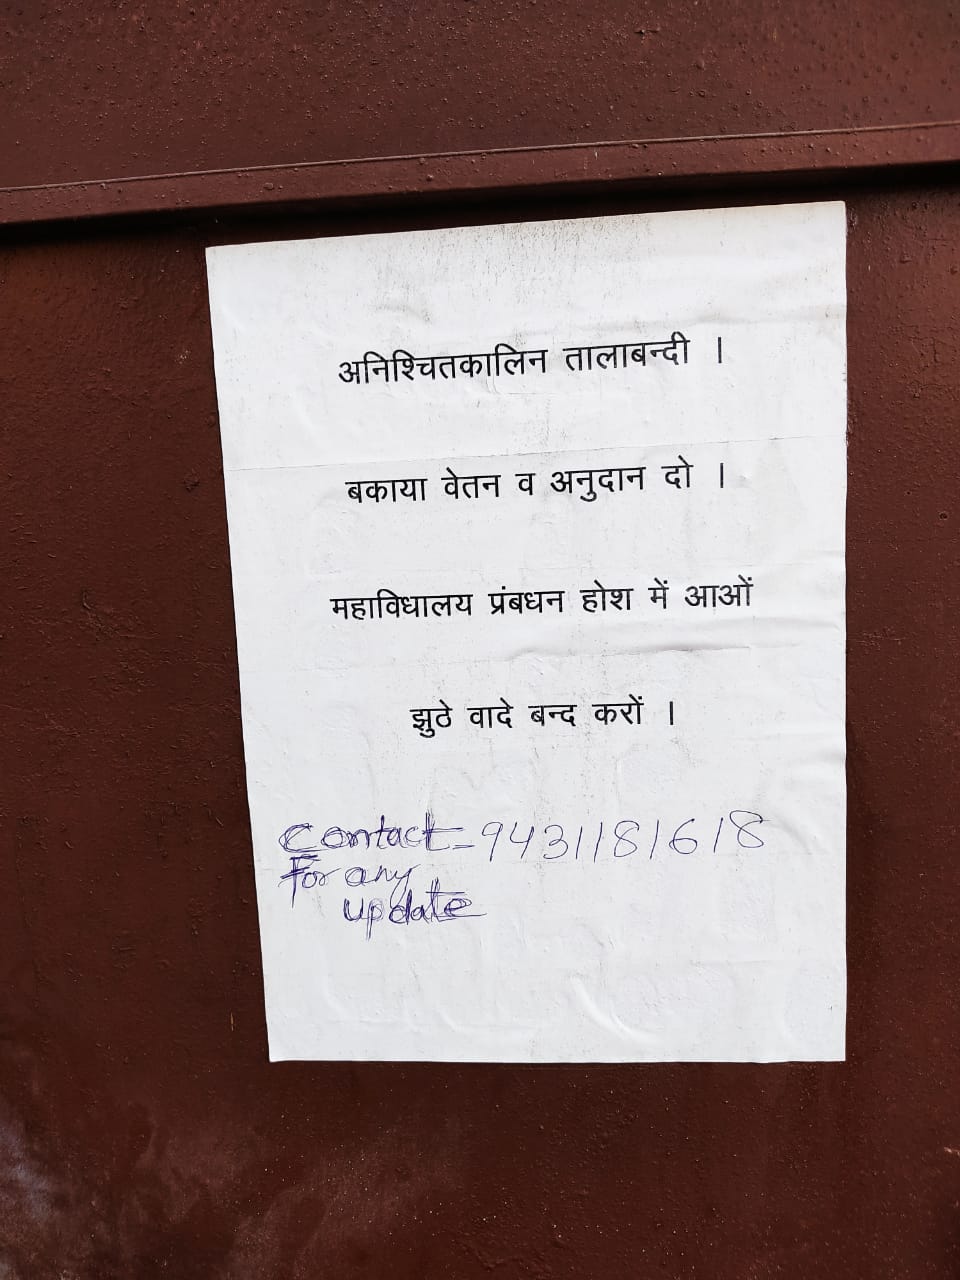 अनिश्चितकालिन तालाबन्दी ।
बकाया वेतन व अनुदान दो ।
महाविधालय प्रंबधन होश में आओं
झुठे वादे बन्द करों ।
Contact - 9431181618
For any
update